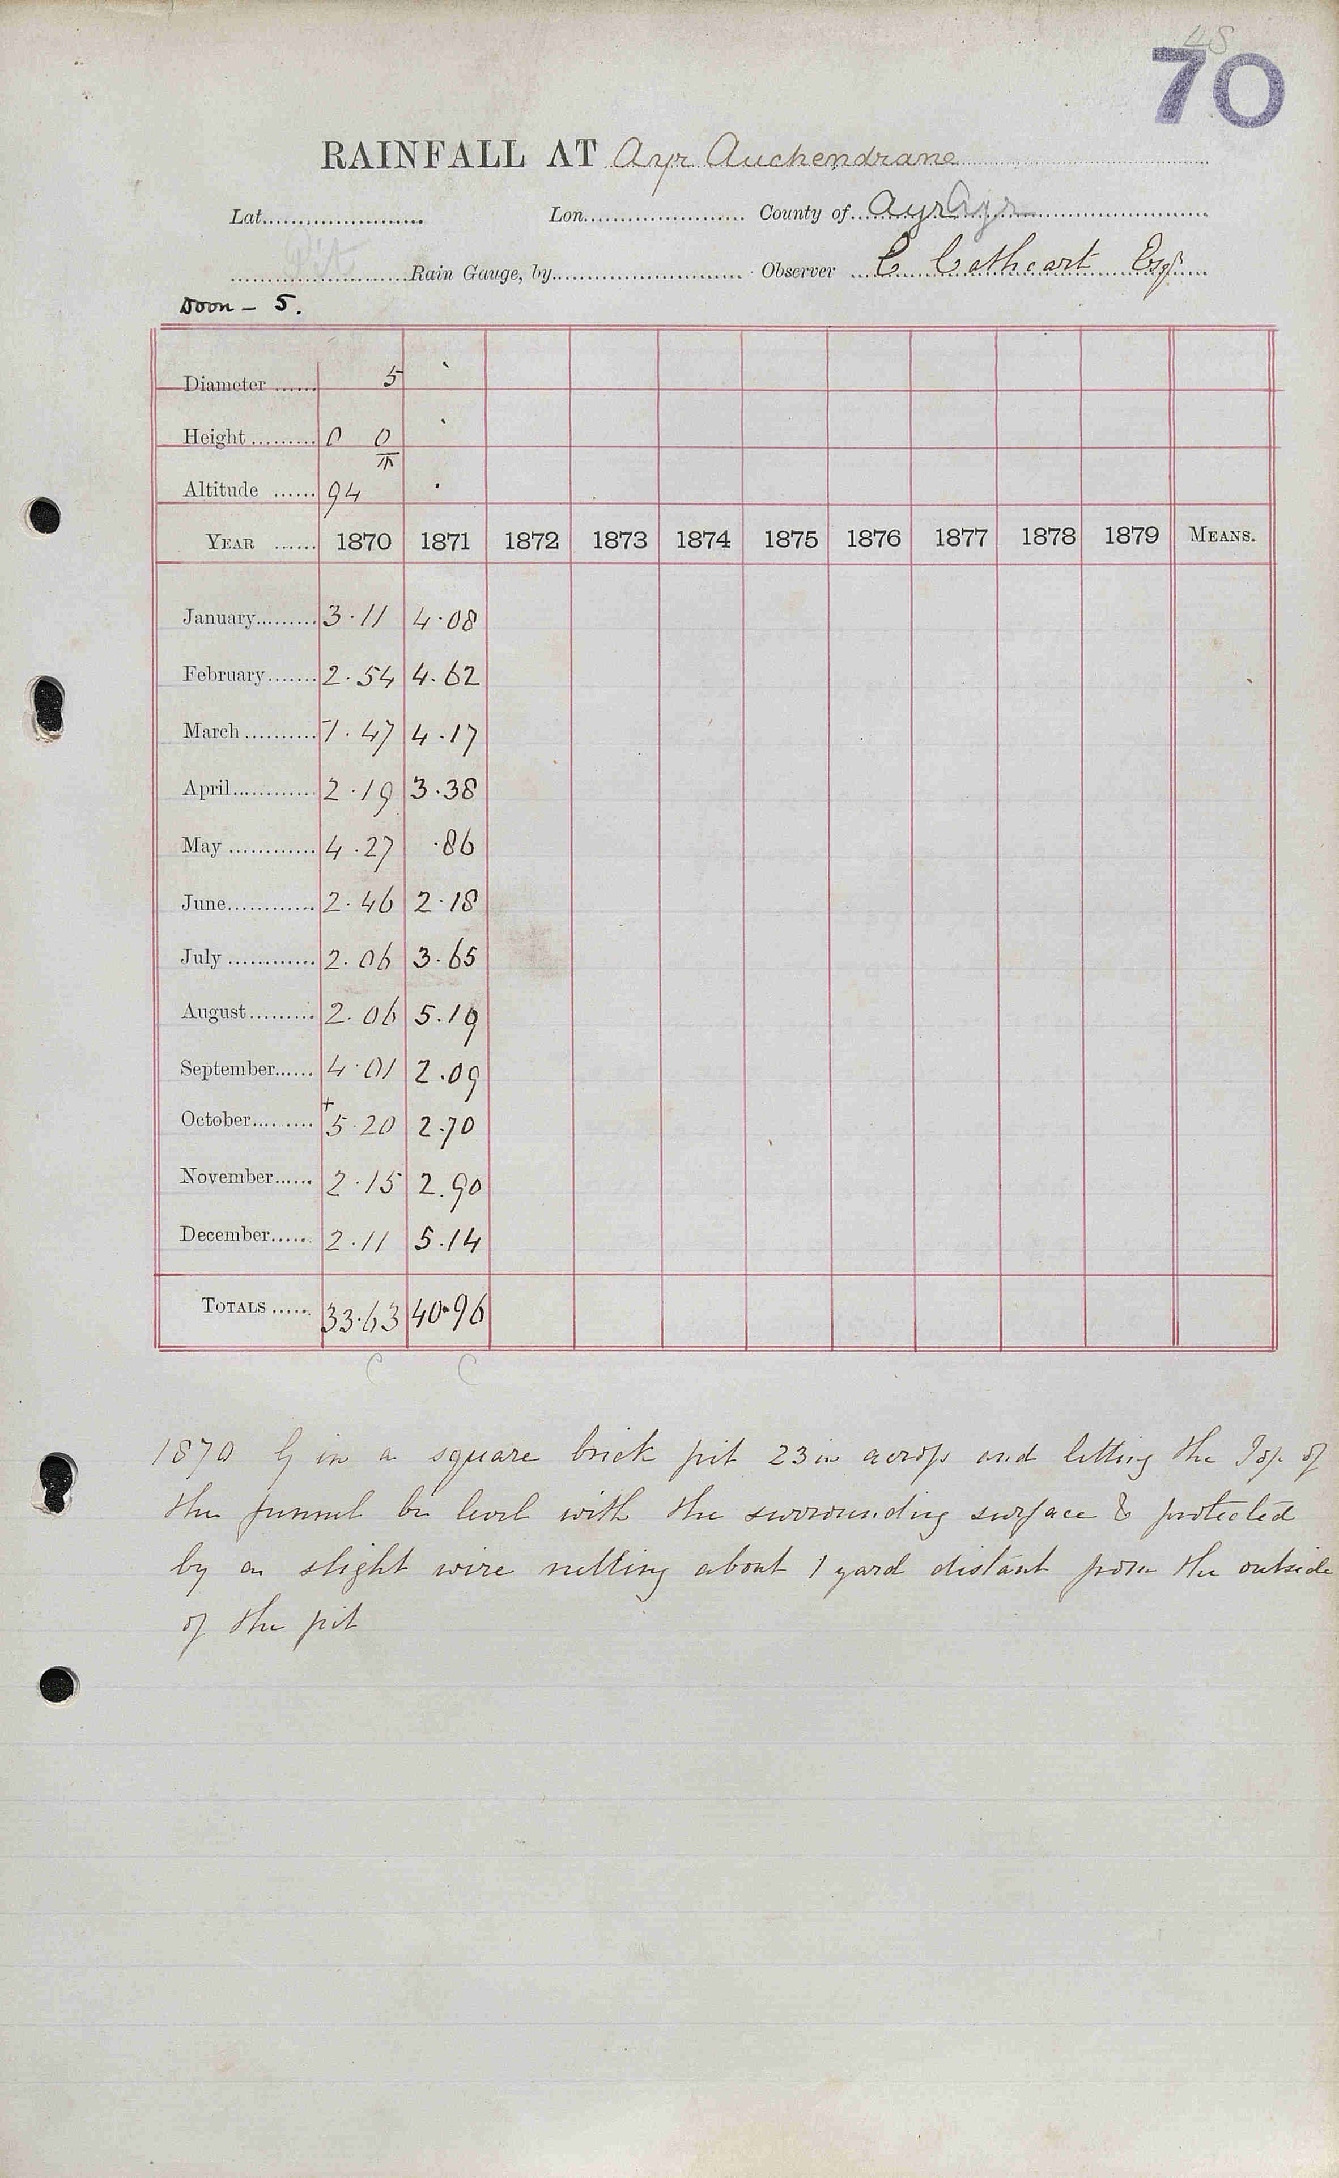 48
70
RAINFALL AT Ayr Auchendrane
Lat. Lon. County of Ayr Ayr
Pit Rain Gauge, by Observer C Cathcart Esqr
Doon - 5.
Diameter 5
Height 0 0
Altitude 94
YEAR 1870 1871 1872 1873 1874 1875 1876 1877 1878 1879 MEANS.
January 3.11 4.08
February 2.54 4.62
March 1.47 4.17
April 2.19 3.38
May 4.27 .86
June 2.46 2.18
July 2.06 3.65
August 2.06 5.19
September 4.01 2.09
October +5.20 2.70
November 2.15 2.90
December 2.11 5.14
TOTALS 33.63 40.96
C C
1870 G in a square brick pit 23 in across and letting the Top of
the funnel be level with the surrounding surface & protected
by a slight wire netting about 1 yard distant from the outside
of the pit